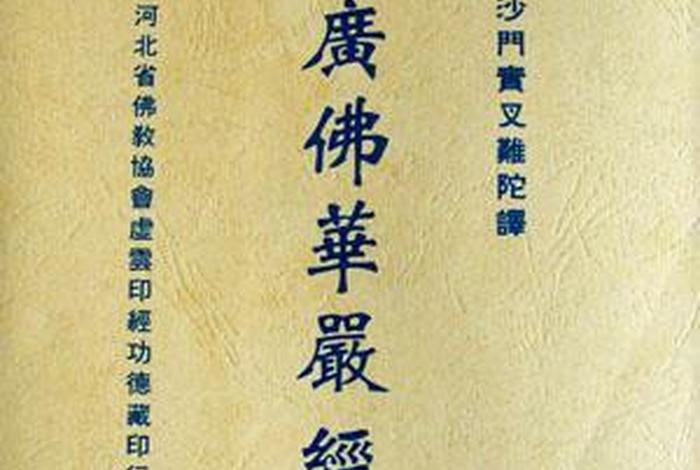 沙門實叉難陀譯
廣佛華嚴經
河北省佛教協會虛雲印經功德藏印行